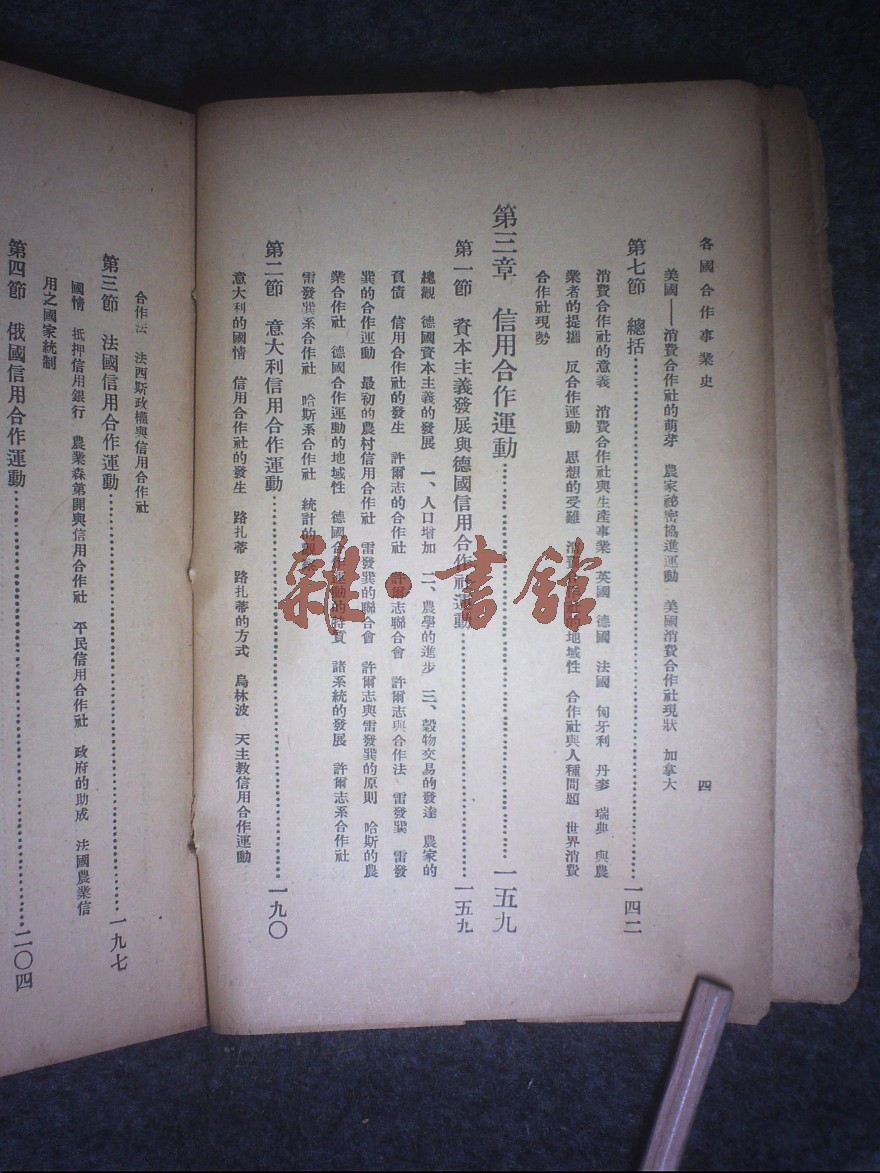 各國合作事業史
四
美國——消費合作社的萌芽　農家祕密協進運動　美國消費合作社現狀　加拿大
第七節　總括…………一四二
消費合作社的意義　消費合作社與生產事業　英國　德國　法國　匈牙利　丹麥　瑞典　與農
業者的提攜　反合作運動　思想的受難　消費合作社的地域性　合作社與人種問題　世界消費
合作社現勢
第三章　信用合作運動…………一五九
第一節　資本主義發展與德國信用合作社運動…………一五九
總觀　德國資本主義的發展　一、人口增加　二、農學的進步　三、穀物交易的發達　農家的
負債　信用合作社的發生　許爾志的合作社　許爾志聯合會　許爾志與合作法　雷發巽　雷發
巽的合作運動　最初的農村信用合作社　雷發巽的聯合會　許爾志與雷發巽的原則　哈斯的農
業合作社　德國合作運動的地域性　德國合作運動的特質　諸系統的發展　許爾志系合作社
雷發巽系合作社　哈斯系合作社　統計的
第二節　意大利信用合作運動…………一九〇
意大利的國情　信用合作社的發生　路扎蒂　路扎蒂的方式　烏林波　天主教信用合作運動
合作法　法西斯政權與信用合作社
第三節　法國信用合作運動…………一九七
國情　抵押信用銀行　農業森第開與信用合作社　平民信用合作社　政府的助成　法國農業信
用之國家統制
第四節　俄國信用合作運動…………二〇四
雜·書館